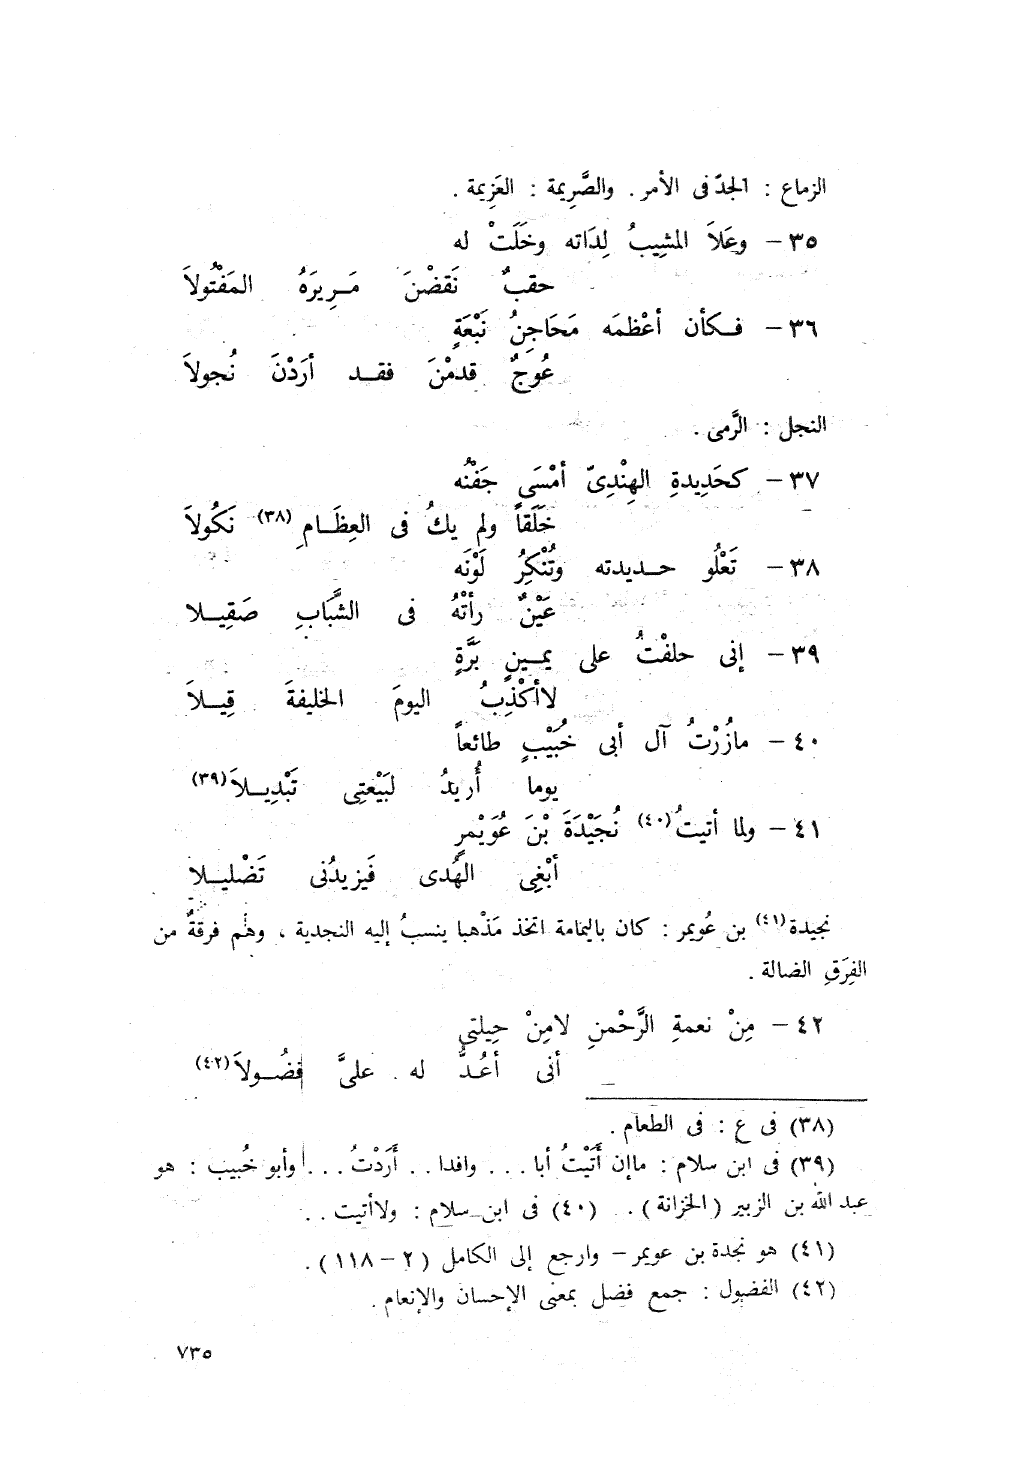 الزماع : الجدّ فى الأمر . والصَّرِيمة : العَزِيمة .
٣٥ – وعَلاَ المشِيبُ لِدَاته وخَلَتْ له
حقبٌ نَقضْنَ مَـرِيرَهُ المَفْتُولاَ
٣٦ – فـكأن أعْظمَه مَحَاجِنُ نَبْعَةٍ
عُوجٌ قدمْنَ فقـد أرَدْنَ نُجولاَ
النجل : الرَّمى .
٣٧ – كحَدِيدةِ الهِنْدِىّ أمْسَى جَفْنُه
خَلَقاً ولم يكُ فى العِظَـامِ (٣٨) نَكُولاَ
٣٨ – تَعْلُو حـديدته وتُنْكِرُ لَوْنَه
عَيْنٌ رأتْهُ فى الشَّبَابِ صَقِيـلا
٣٩ – إنى حلفْتُ على يمـينٍ بَرَّةٍ
لاأكْذِبُ اليومَ الخليفةَ قِيـلاَ
٤٠ – مازُرْتُ آل أبى خُبَيْبٍ طائعاً
يوما أُريدُ لبَيْعَتِى تَبْدِيـلاَ (٣٩)
٤١ – ولما أتيتُ (٤٠) نُجَيْدَةَ بْنَ عُوَيْمرٍ
أبْغِى الهُدى فَيزيدُنى تَضْليـلا
نجيدة (٤١) بن عُويمر : كان باليمامة اتخذ مَذْهبا ينسبُ إليه النجدية ، وهُم فرقةٌ من
الفِرَقِ الضالة .
٤٢ – مِنْ نعمةِ الرَّحْمنِ لامِنْ حِيلتى
أنى أعُـدُّ له . علىَّ فضُـولاَ (٤٢)
(٣٨) فى ع : فى الطعام .
(٣٩) فى ابن سلام : ماإن أَتَيْتُ أبا . . . وافدا . . أَرَدْتُ . . . وأبو خُبيب : هو
عبد الله بن الزبير (الخزانة) . (٤٠) فى ابن سلام : ولاأتيت . .
(٤١) هو نجدة بن عويمر – وارجع إلى الكامل (٢ – ١١٨) .
(٤٢) الفضول : جمع فضل بمعنى الإحسان والإنعام .
٧٣٥